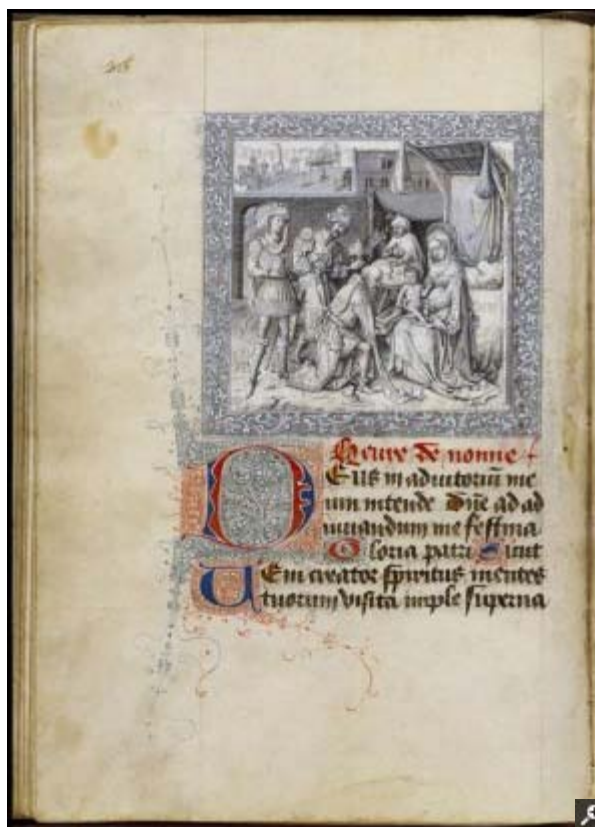 Heure de nonne
Deus in adiutoriū me
um intende Dñe ad ad
iuuandum me festina
Gloria patri Sicut
Uem creator spiritus mentes
tuorum visita imple superna